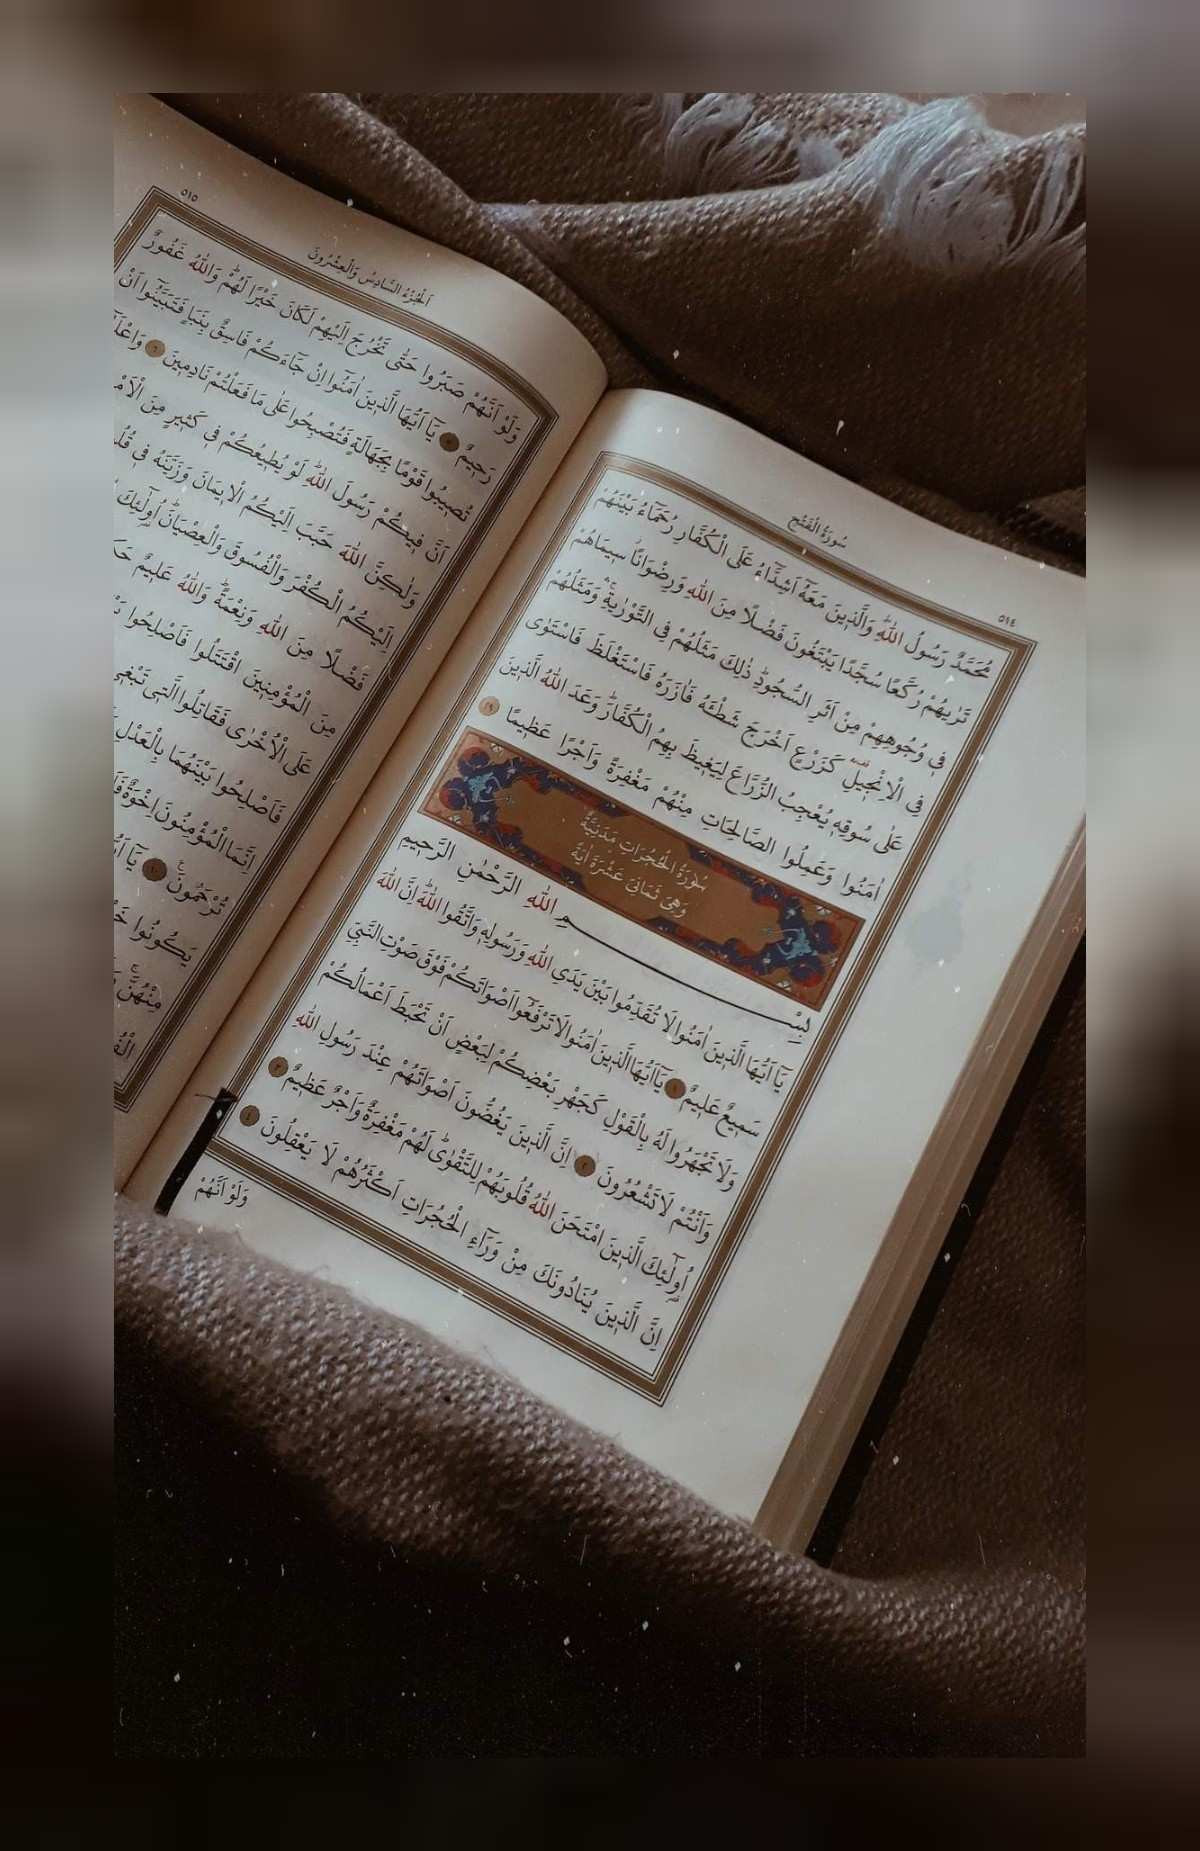 سُورَةُ الْفَتْحِ
٥١٤
مُحَمَّدٌ رَسُولُ اللّٰهِ وَالَّذ۪ينَ مَعَهُٓ اَشِدَّٓاءُ عَلَى الْكُفَّارِ رُحَمَٓاءُ بَيْنَهُمْ
تَرٰيهُمْ رُكَّعًا سُجَّدًا يَبْتَغُونَ فَضْلًا مِنَ اللّٰهِ وَرِضْوَانًا س۪يمَاهُمْ
ف۪ي وُجُوهِهِمْ مِنْ اَثَرِ السُّجُودِ ذٰلِكَ مَثَلُهُمْ فِي التَّوْرٰيةِ وَمَثَلُهُمْ
فِي الْاِنْج۪يلِ كَزَرْعٍ اَخْرَجَ شَطْـَٔهُ فَاٰزَرَهُ فَاسْتَغْلَظَ فَاسْتَوٰى
عَلٰى سُوقِه۪ يُعْجِبُ الزُّرَّاعَ لِيَغ۪يظَ بِهِمُ الْكُفَّارَ وَعَدَ اللّٰهُ الَّذ۪ينَ
اٰمَنُوا وَعَمِلُوا الصَّالِحَاتِ مِنْهُمْ مَغْفِرَةً وَاَجْرًا عَظ۪يمًا ٢٩
سُورَةُ الْحُجُرَاتِ مَدَنِيَّةٌ
وَهِيَ ثَمَانِيَ عَشْرَةَ اٰيَةً
بِسْمِ اللّٰهِ الرَّحْمٰنِ الرَّح۪يمِ
يَٓا اَيُّهَا الَّذ۪ينَ اٰمَنُوا لَا تُقَدِّمُوا بَيْنَ يَدَيِ اللّٰهِ وَرَسُولِه۪ وَاتَّقُوا اللّٰهَ اِنَّ اللّٰهَ
سَم۪يعٌ عَل۪يمٌ ١ يَٓا اَيُّهَا الَّذ۪ينَ اٰمَنُوا لَا تَرْفَعُٓوا اَصْوَاتَكُمْ فَوْقَ صَوْتِ النَّبِيِّ
وَلَا تَجْهَرُوا لَهُ بِالْقَوْلِ كَجَهْرِ بَعْضِكُمْ لِبَعْضٍ اَنْ تَحْبَطَ اَعْمَالُكُمْ
وَاَنْتُمْ لَا تَشْعُرُونَ ٢ اِنَّ الَّذ۪ينَ يَغُضُّونَ اَصْوَاتَهُمْ عِنْدَ رَسُولِ اللّٰهِ
اُو۬لٰٓئِكَ الَّذ۪ينَ امْتَحَنَ اللّٰهُ قُلُوبَهُمْ لِلتَّقْوٰى لَهُمْ مَغْفِرَةٌ وَاَجْرٌ عَظ۪يمٌ ٣
اِنَّ الَّذ۪ينَ يُنَادُونَكَ مِنْ وَرَٓاءِ الْحُجُرَاتِ اَكْثَرُهُمْ لَا يَعْقِلُونَ ٤
وَلَوْ اَنَّهُمْ
٥١٥
اَلْجُزْءُ السَّادِسُ وَالْعِشْرُونَ
وَلَوْ اَنَّهُمْ صَبَرُوا حَتّٰى تَخْرُجَ اِلَيْهِمْ لَكَانَ خَيْرًا لَهُمْ وَاللّٰهُ غَفُورٌ
رَح۪يمٌ ٥ يَٓا اَيُّهَا الَّذ۪ينَ اٰمَنُٓوا اِنْ جَٓاءَكُمْ فَاسِقٌ بِنَبَأٍ فَتَبَيَّنُٓوا اَنْ
تُص۪يبُوا قَوْمًا بِجَهَالَةٍ فَتُصْبِحُوا عَلٰى مَا فَعَلْتُمْ نَادِم۪ينَ ٦
اَنَّ ف۪يكُمْ رَسُولَ اللّٰهِ لَوْ يُط۪يعُكُمْ ف۪ي كَث۪يرٍ مِنَ
وَلٰكِنَّ اللّٰهَ حَبَّبَ اِلَيْكُمُ الْا۪يمَانَ وَزَيَّنَهُ ف۪ي
اِلَيْكُمُ الْكُفْرَ وَالْفُسُوقَ وَالْعِصْيَانَ اُو۬لٰٓئِكَ
فَضْلًا مِنَ اللّٰهِ وَنِعْمَةً وَاللّٰهُ عَل۪يمٌ
مِنَ الْمُؤْمِن۪ينَ اقْتَتَلُوا فَاَصْلِحُوا
عَلَى الْاُخْرٰى فَقَاتِلُوا الَّت۪ي تَبْغ۪ي
فَاَصْلِحُوا بَيْنَهُمَا بِالْعَدْلِ
اِنَّمَا الْمُؤْمِنُونَ اِخْوَةٌ
تُرْحَمُونَ ١٠ يَٓا
يَكُونُوا
مِنْهُنَّ